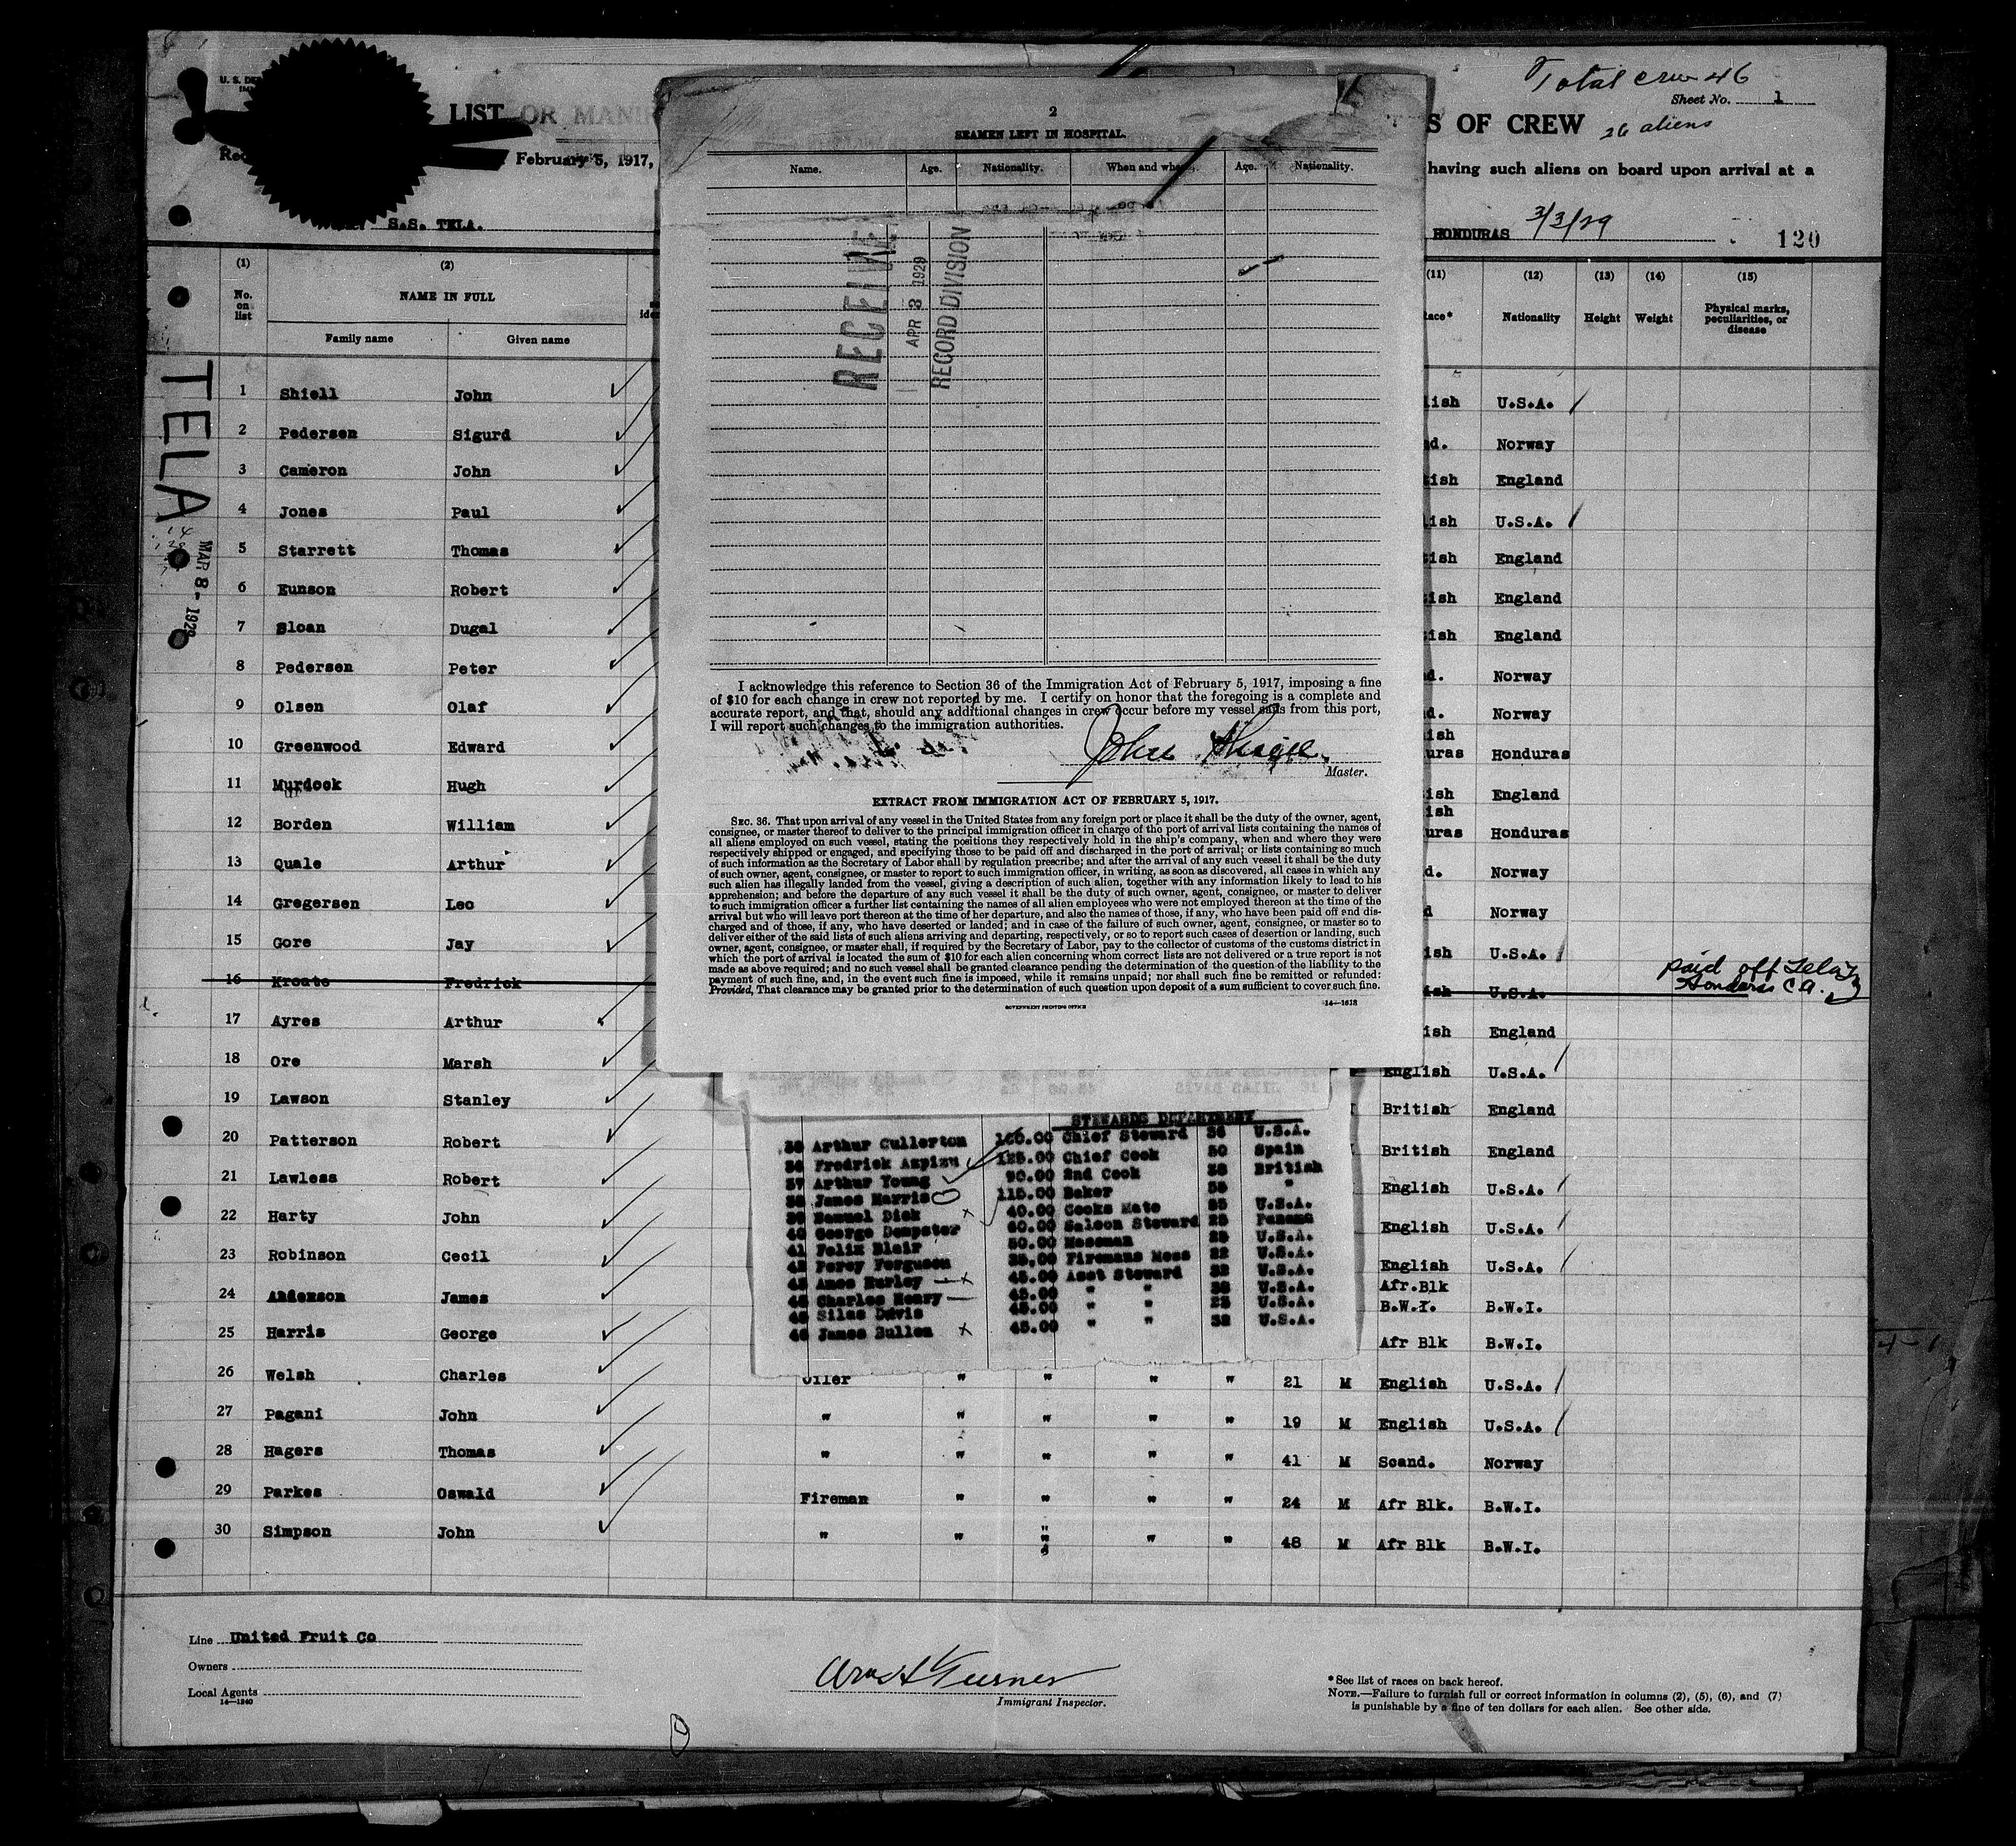 Total crew 46
Sheet No. 1
LIST OR MANI
S OF CREW 26 aliens
February 5, 1917,
having such aliens on board upon arrival at a
S.S. TELA.
HONDURAS 3/3/29
120
(1) (2) (11) (12) (13) (14) (15)
No. on list
NAME IN FULL
Family name Given name
Nationality Height Weight Physical marks, peculiarities, or disease
TELA
MAR 8 - 1929
1 Shiell John lish U.S.A.
2 Pedersen Sigurd d. Norway
3 Cameron John ish England
4 Jones Paul lish U.S.A.
5 Starrett Thomas ish England
6 Eunson Robert ish England
7 Sloan Dugal ish England
8 Pedersen Peter d. Norway
9 Olsen Olaf d. Norway
10 Greenwood Edward ish uras Honduras
11 Murdock Hugh ish England
12 Borden William ish uras Honduras
13 Quale Arthur d. Norway
14 Gregersen Leo d Norway
15 Gore Jay ish U.S.A.
16 Kroate Fredrick ish U.S.A. paid off Tela Honduras C.A.
17 Ayres Arthur ish England
18 Ore Marsh English U.S.A.
19 Lawson Stanley British England
20 Patterson Robert British England
21 Lawless Robert English U.S.A.
22 Harty John English U.S.A.
23 Robinson Cecil English U.S.A.
24 Anderson James Afr.Blk B.W.I. B.W.I.
25 Harris George Afr Blk B.W.I.
26 Welsh Charles Oiler " " " " 21 M English U.S.A.
27 Pagani John " " " " " 19 M English U.S.A.
28 Hagers Thomas " " " " " 41 M Scand. Norway
29 Parkes Oswald Fireman " " " " 24 M Afr Blk. B.W.I.
30 Simpson John " " " " " 48 M Afr Blk B.W.I.
Line United Fruit Co
Owners
Local Agents
14—1240
Immigrant Inspector.
* See list of races on back hereof.
NOTE.—Failure to furnish full or correct information in columns (2), (5), (6), and (7)
is punishable by a fine of ten dollars for each alien. See other side.
2
SEAMEN LEFT IN HOSPITAL.
Name. Age. Nationality. When and where. Age. Nationality.
RECEIVE
APR 3 1929
RECORD DIVISION
I acknowledge this reference to Section 36 of the Immigration Act of February 5, 1917, imposing a fine
of $10 for each change in crew not reported by me. I certify on honor that the foregoing is a complete and
accurate report, and that, should any additional changes in crew occur before my vessel sails from this port,
I will report such changes to the immigration authorities.
John Shiell.
Master.
EXTRACT FROM IMMIGRATION ACT OF FEBRUARY 5, 1917.
SEC. 36. That upon arrival of any vessel in the United States from any foreign port or place it shall be the duty of the owner, agent,
consignee, or master thereof to deliver to the principal immigration officer in charge of the port of arrival lists containing the names of
all aliens employed on such vessel, stating the positions they respectively hold in the ship's company, when and where they were
respectively shipped or engaged, and specifying those to be paid off and discharged in the port of arrival; or lists containing so much
of such information as the Secretary of Labor shall by regulation prescribe; and after the arrival of any such vessel it shall be the duty
of such owner, agent, consignee, or master to report to such immigration officer, in writing, as soon as discovered, all cases in which any
such alien has illegally landed from the vessel, giving a description of such alien, together with any information likely to lead to his
apprehension; and before the departure of any such vessel it shall be the duty of such owner, agent, consignee, or master to deliver
to such immigration officer a further list containing the names of all alien employees who were not employed thereon at the time of the
arrival but who will leave port thereon at the time of her departure, and also the names of those, if any, who have been paid off end dis-
charged and of those, if any, who have deserted or landed; and in case of the failure of such owner, agent, consignee, or master so to
deliver either of the said lists of such aliens arriving and departing, respectively, or so to report such cases of desertion or landing, such
owner, agent, consignee, or master shall, if required by the Secretary of Labor, pay to the collector of customs of the customs district in
which the port of arrival is located the sum of $10 for each alien concerning whom correct lists are not delivered or a true report is not
made as above required; and no such vessel shall be granted clearance pending the determination of the question of the liability to the
payment of such fine, and, in the event such fine is imposed, while it remains unpaid; nor shall such fine be remitted or refunded:
Provided, That clearance may be granted prior to the determination of such question upon deposit of a sum sufficient to cover such fine.
GOVERNMENT PRINTING OFFICE 14—1613
STEWARDS DEPARTMENT
Arthur Cullerton Chief Steward U.S.A.
Fredrick Azpizu 125.00 Chief Cook 50 Spain
37 Arthur Young 90.00 2nd Cook British
James Harris 115.00 Baker "
Samuel Dick 40.00 Cooks Mate U.S.A.
40 George Dempster 60.00 Saloon Steward Panama
41 Felix Blair 50.00 Messman U.S.A.
42 Percy Ferguson Firemans Mess 22 U.S.A.
Amos Hurley 45.00 Asst Steward 32 U.S.A.
Charles Henry 45.00 " " U.S.A.
Silas Davis 45.00 " " U.S.A.
46 James Bullen 45.00 " " 32 U.S.A.